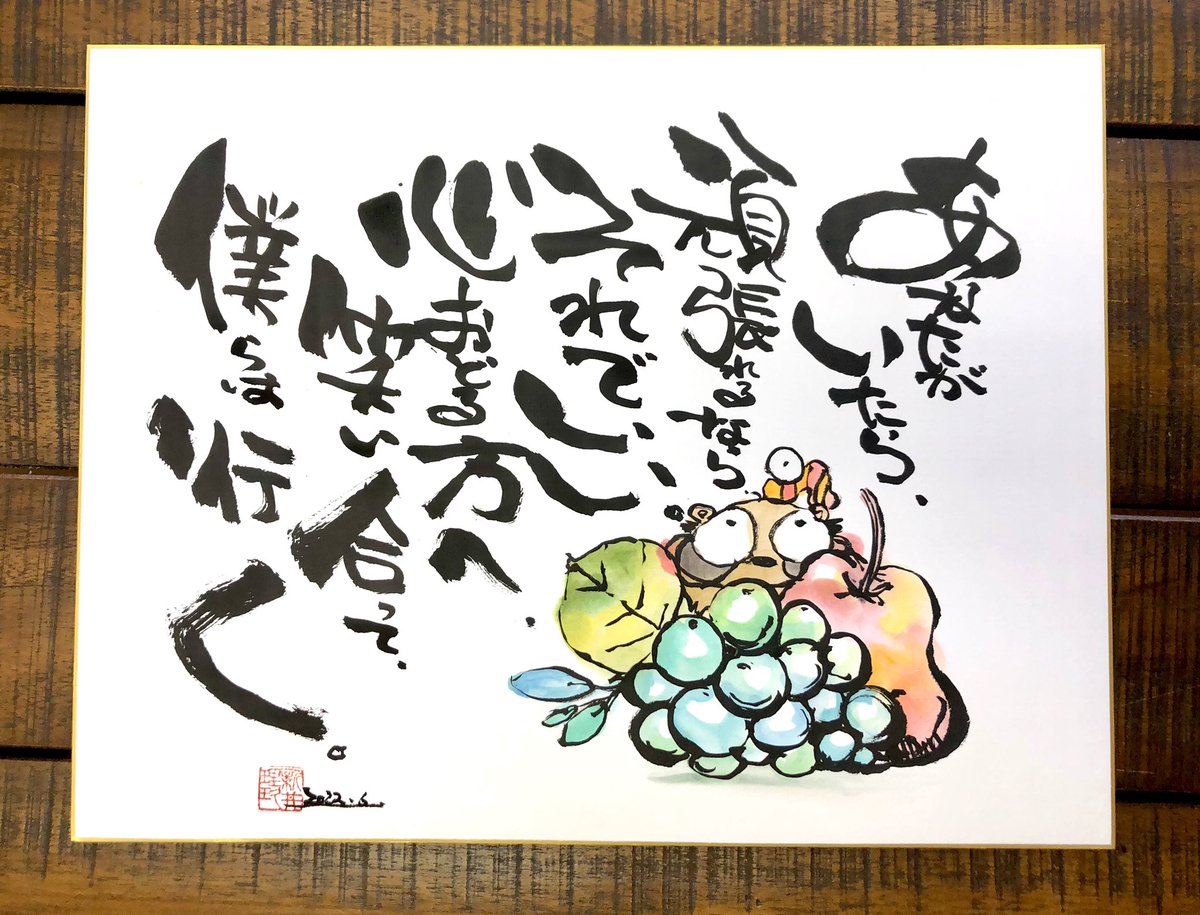 あなたが
いたら、
頑張れるなら
それで、
いい、
心おどる方へ、
笑い合って、
僕らは行く。
2022.6